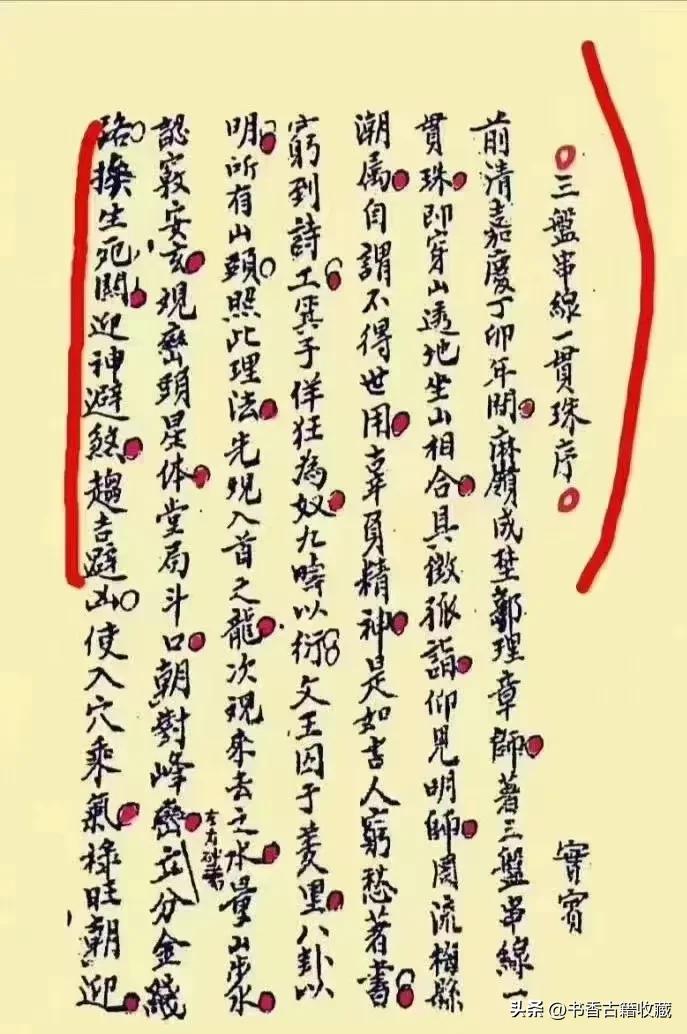 三盤串線一貫珠序
實賓
前清嘉慶丁卯年間麻嶺成埜鄒理章師著三盤串線一
貫珠即穿山透地坐山相合具徵孤詣仰見明師周流梅縣
潮属自謂不得世用辜負精神是如古人窮愁著書
窮到詩工箕子佯狂為奴九疇以衍文王囚于羑里八卦以
明所有山頭照此理法先覌入首之龍次覌來去之水量山步水
左右砂
認竅安玄現巒頭星体堂局斗口朝對峰巒立分金綫
路換生死關迎神避煞趨吉避凶使入穴乘氣祿旺朝迎
头条 @书香古籍收藏